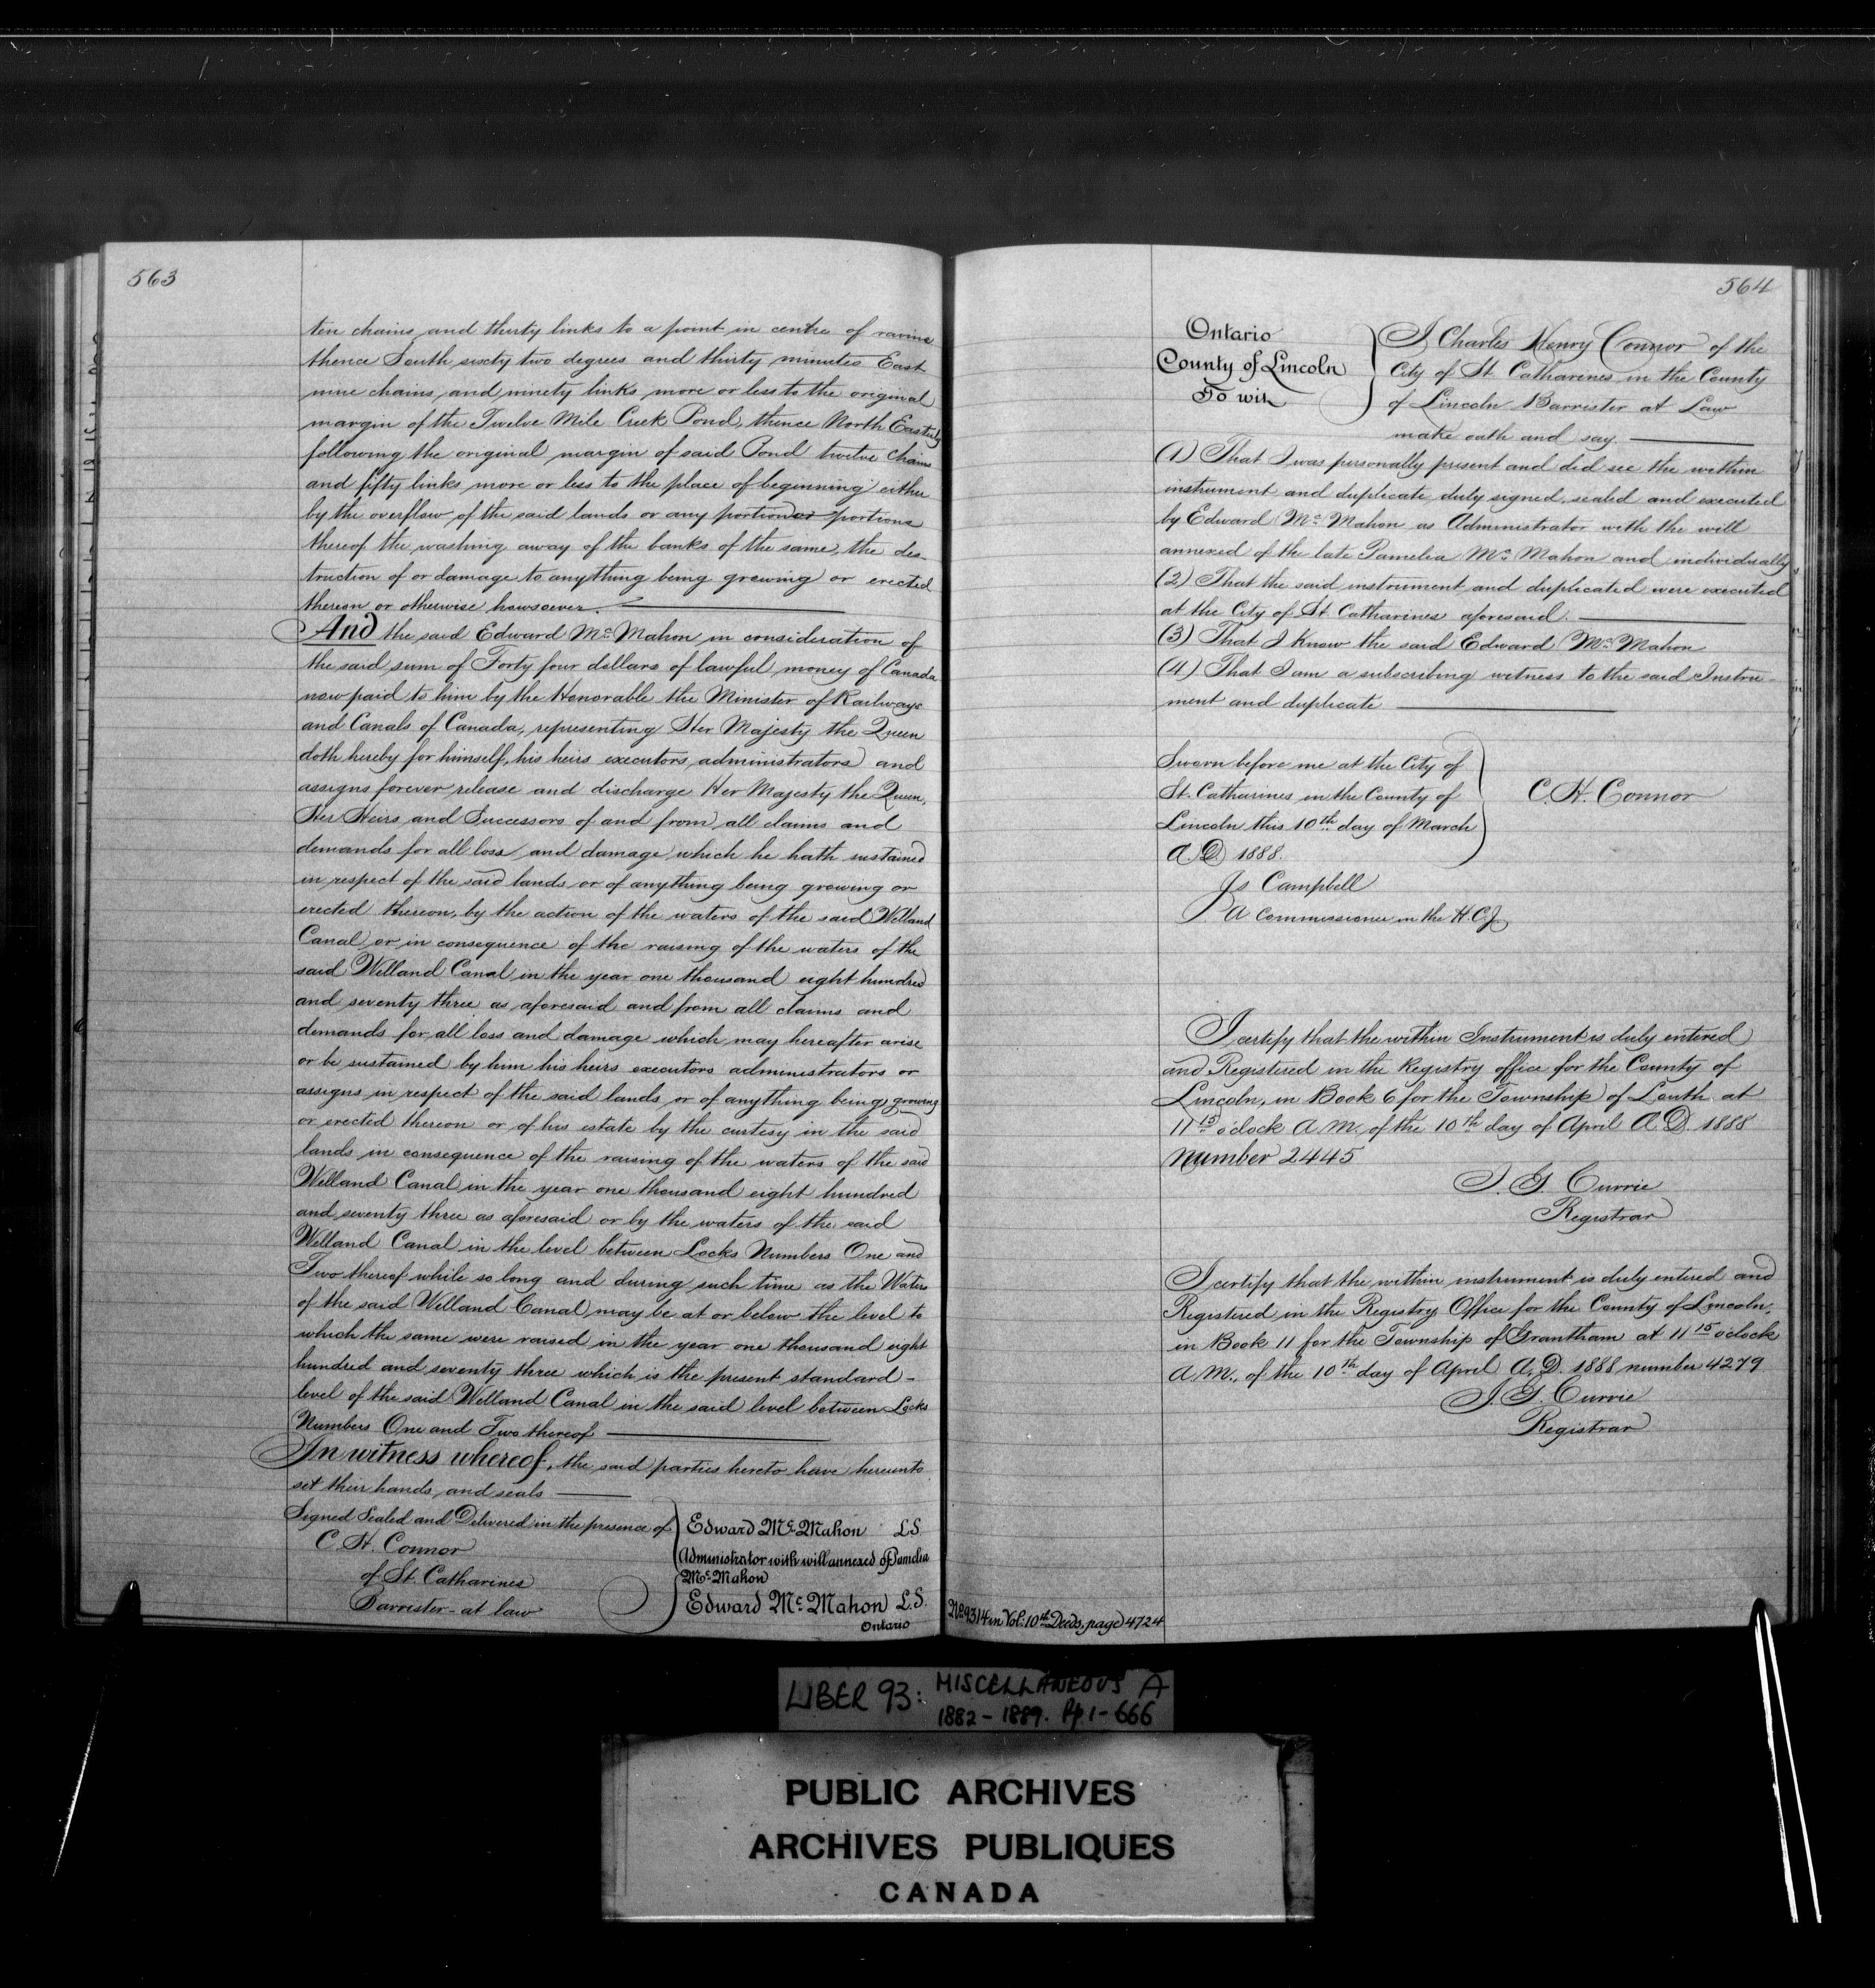 563
ten chains and thirty links to a point in centre of ravine
thence South sixty two degrees and thirty minutes East
nine chains and ninety links more or less to the original
margin of the Twelve Mile Creek Pond, thence North Easterly
following the original margin of said Pond twelve chains
and fifty links more or less to the place of beginning either
by the overflow of the said lands or any portion or portions
thereof the washing away of the banks of the same, the des-
truction of or damage to anything being growing or erected
thereon or otherwise howsoever.
And the said Edward Mc Mahon in consideration of
the said sum of Forty four dollars of lawful money of Canada
now paid to him by the Honorable the Minister of Railways
and Canals of Canada, representing Her Majesty the Queen
doth hereby for himself, his heirs executors, administrators and
assigns forever release and discharge Her Majesty the Queen,
Her Heirs and Successors of and from all claims and
demands for all loss and damage which he hath sustained
in respect of the said lands or of anything being growing or
erected thereon, by the action of the waters of the said Welland
Canal or in consequence of the raising of the waters of the
said Welland Canal in the year one thousand eight hundred
and seventy three as aforesaid and from all claims and
demands for all loss and damage which may hereafter arise
or be sustained by him his heirs executors administrators or
assigns in respect of the said lands or of anything being growing
or erected thereon or of his estate by the curtesy in the said
lands in consequence of the raising of the waters of the said
Welland Canal in the year one thousand eight hundred
and seventy three as aforesaid or by the waters of the said
Welland Canal in the level between Locks Numbers One and
Two thereof while so long and during such time as the Waters
of the said Welland Canal may be at or below the level to
which the same were raised in the year one thousand eight
hundred and seventy three which is the present standard-
level of the said Welland Canal in the said level between Locks
Numbers One and Two thereof
In witness whereof, the said parties hereto have hereunto
set their hands and seals
Signed Sealed and Delivered in the presence of
C. H. Connor
of St. Catharines
Barrister-at law
Edward Mc Mahon L.S.
Administrator with will annexed of Pamelia
Mc Mahon
Edward Mc Mahon L.S.
Ontario
564
Ontario
County of Lincoln
To wit
I Charles Henry Connor of the
City of St. Catharines in the County
of Lincoln Barrister at Law
make oath and say.
(1) That I was personally present and did see the within
instrument and duplicate duly signed, sealed and executed
by Edward Mc Mahon as Administrator with the will
annexed of the late Pamelia Mc Mahon and individually
(2) That the said instrument and duplicated were executed
at the City of St Catharines aforesaid.
(3) That I know the said Edward Mc Mahon
(4) That I am a subscribing witness to the said Instru-
ment and duplicate
Sworn before me at the City of
St. Catharines in the County of
Lincoln this 10th day of March
A.D. 1888.
C. H. Connor
Js Campbell
A Commissioner in the H.C.J.
I certify that the within Instrument is duly entered
and Registered in the Registry office for the County of
Lincoln, in Book 6 for the Township of Louth at
11 15 o'clock A.M. of the 10th day of April A.D. 1888
number 2445
J. G. Currie
Registrar
I certify that the within instrument is duly entered and
Registered in the Registry Office for the County of Lincoln,
in Book 11 for the Township of Grantham at 11 15 o'clock
A.M., of the 10th day of April A.D. 1888 number 4279
J. G. Currie
Registrar
No. 9314 in Vol: 10th Deeds, page 4724
LIBER 93: MISCELLANEOUS A
1882-1889. Pp. 1-666
PUBLIC ARCHIVES
ARCHIVES PUBLIQUES
CANADA